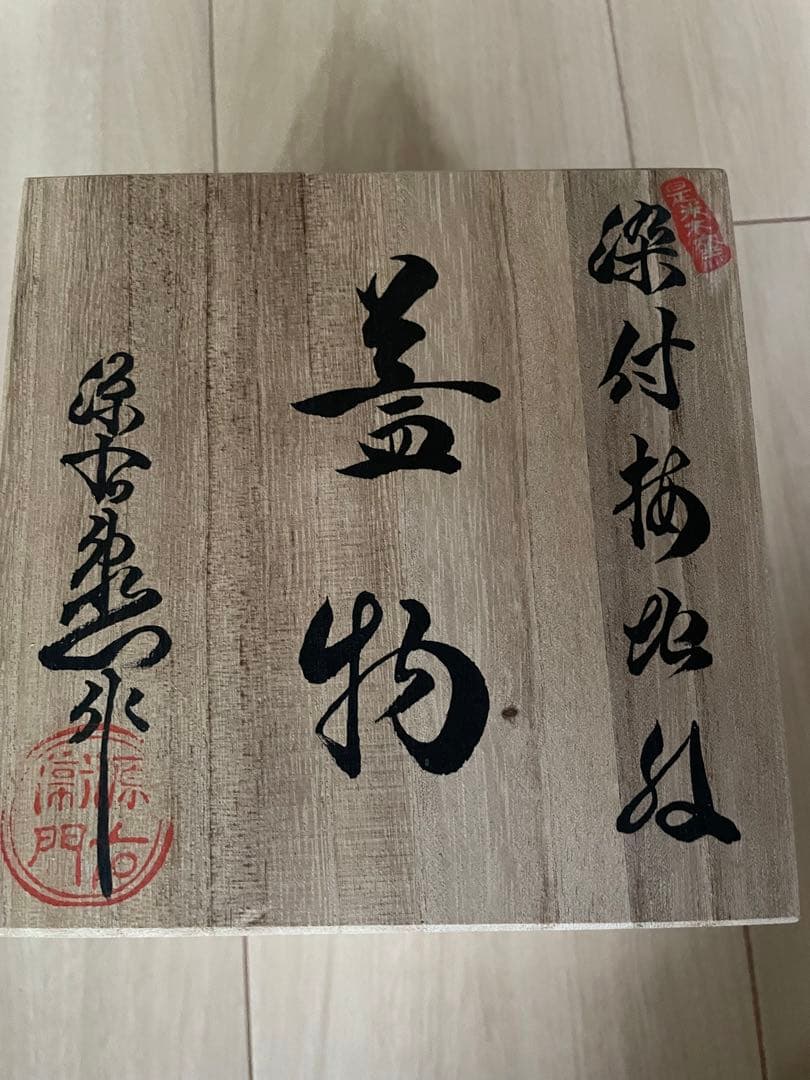 是米木窯
染付梅地紋
蓋物
源右衛門作
源右
衛門